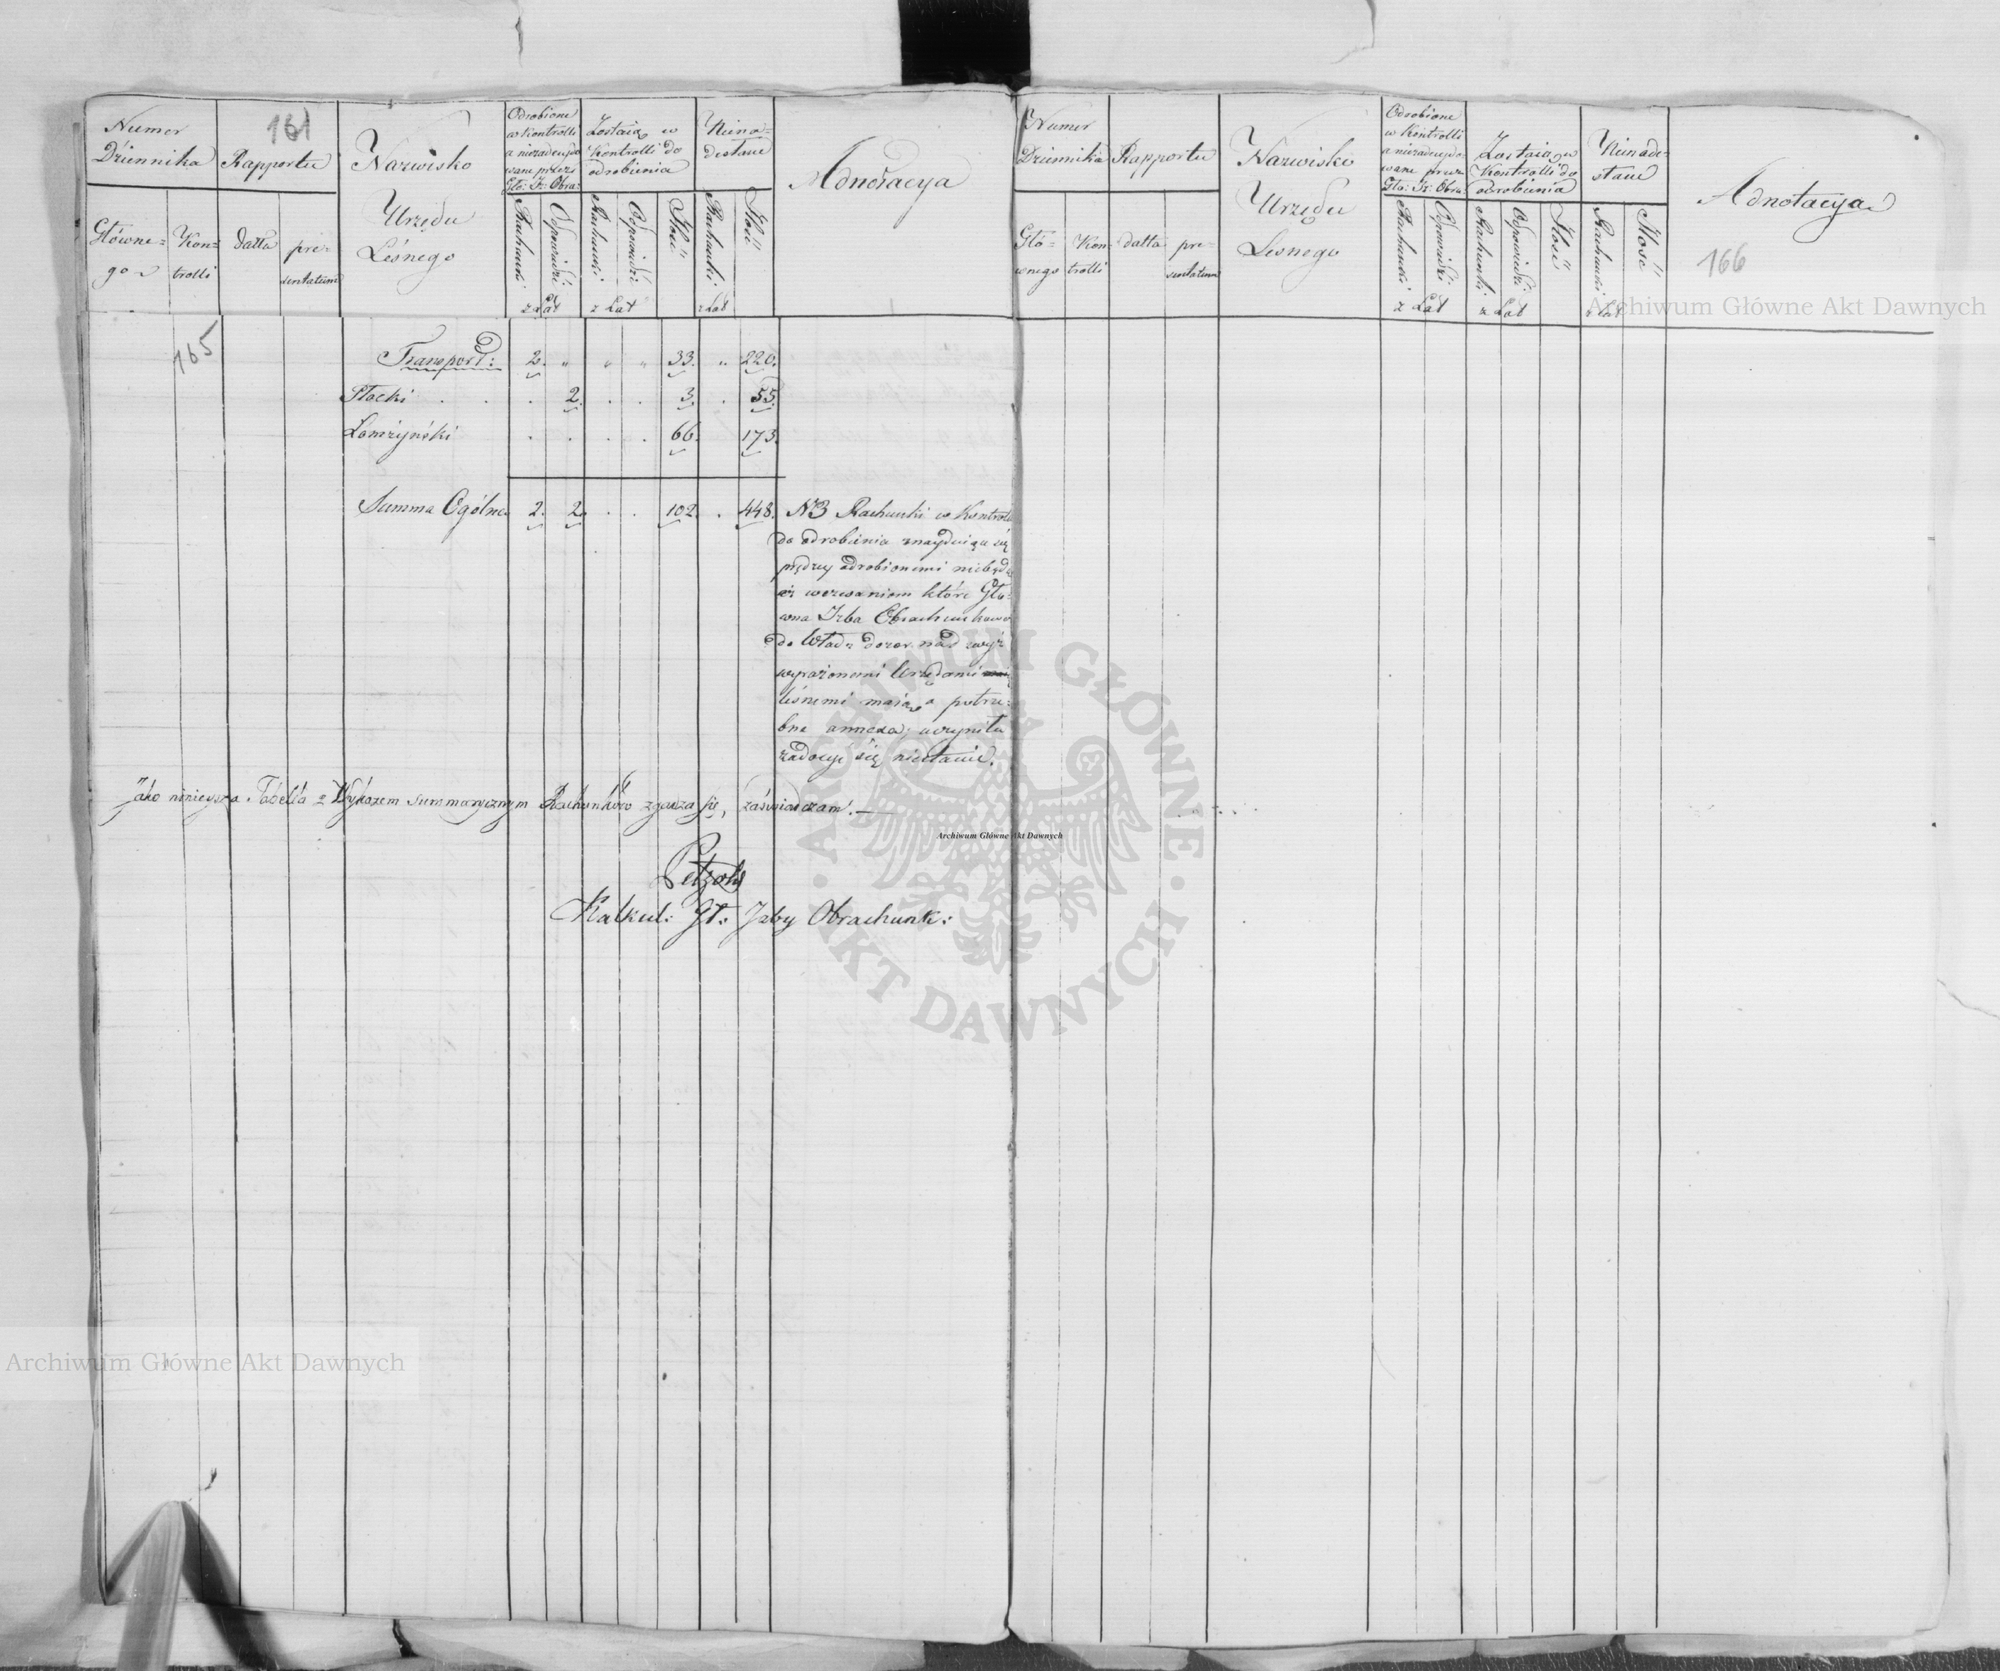 Numer
Dziennika
161
Rapportu
Nazwisko
Urzędu
Leśnego
Odrobione
w Kontrolli
a niezadecydo
wane przez
Gło: Iz: Obra:
Zostaią w
Kontrolli do
odrobienia
Niena=
destane
Adnotacya
Główne=
go
Kon=
trolli
datta
pre=
sentatum
Rachunki
Odpowiedzi
z Lat
Rachunki
Odpowiedzi
z Lat
Ilość
Rachunki
z Lat
Ilość
165
Transport: 2. „ „ „ 33. „ 220.
Płocki . . . . 2. . . 3. . 55.
Łomżyński . . . . 66. . 173.
Summa Ogólna 2. 2. . . 102. . 448.
NB Rachunki w Kontroli
do odrobienia znayduiące się
między odrobionemi niebędą
wezwaniom które Głó=
wna Izba Obrachunkowa
do Władz dozor. nad wyż
wyrażonemi Urzędami
leśnemi maiąc potrze=
bne annexa, uczynić
zadosyć się niestanie.
Jako ninieysza Tabella z Wykazem summarycznym Rachunków zgadza się, zaświadczam. —
Petzold
Kalkul: Gł: Izby Obrachunk:
Numer
Dziennika
Rapportu
Nazwisko
Urzędu
Lesnego
Odrobione
w Kontrolli
a niezadecydo
wane przez
Gło: Iz: Obra:
Zostaią w
Kontrolli do
odrobienia
Nienade=
stane
Adnotacya
166
Głó=
wnego
Kon=
trolli
datta
pre=
sentatum
Rachunki
Odpowiedzi
z Lat
Rachunki
Odpowiedzi
z Lat
Ilość
Rachunki
z Lat
Ilość
Archiwum Główne Akt Dawnych
Archiwum Główne Akt Dawnych
Archiwum Główne Akt Dawnych
ARCHIWUM GŁÓWNE · AKT DAWNYCH ·